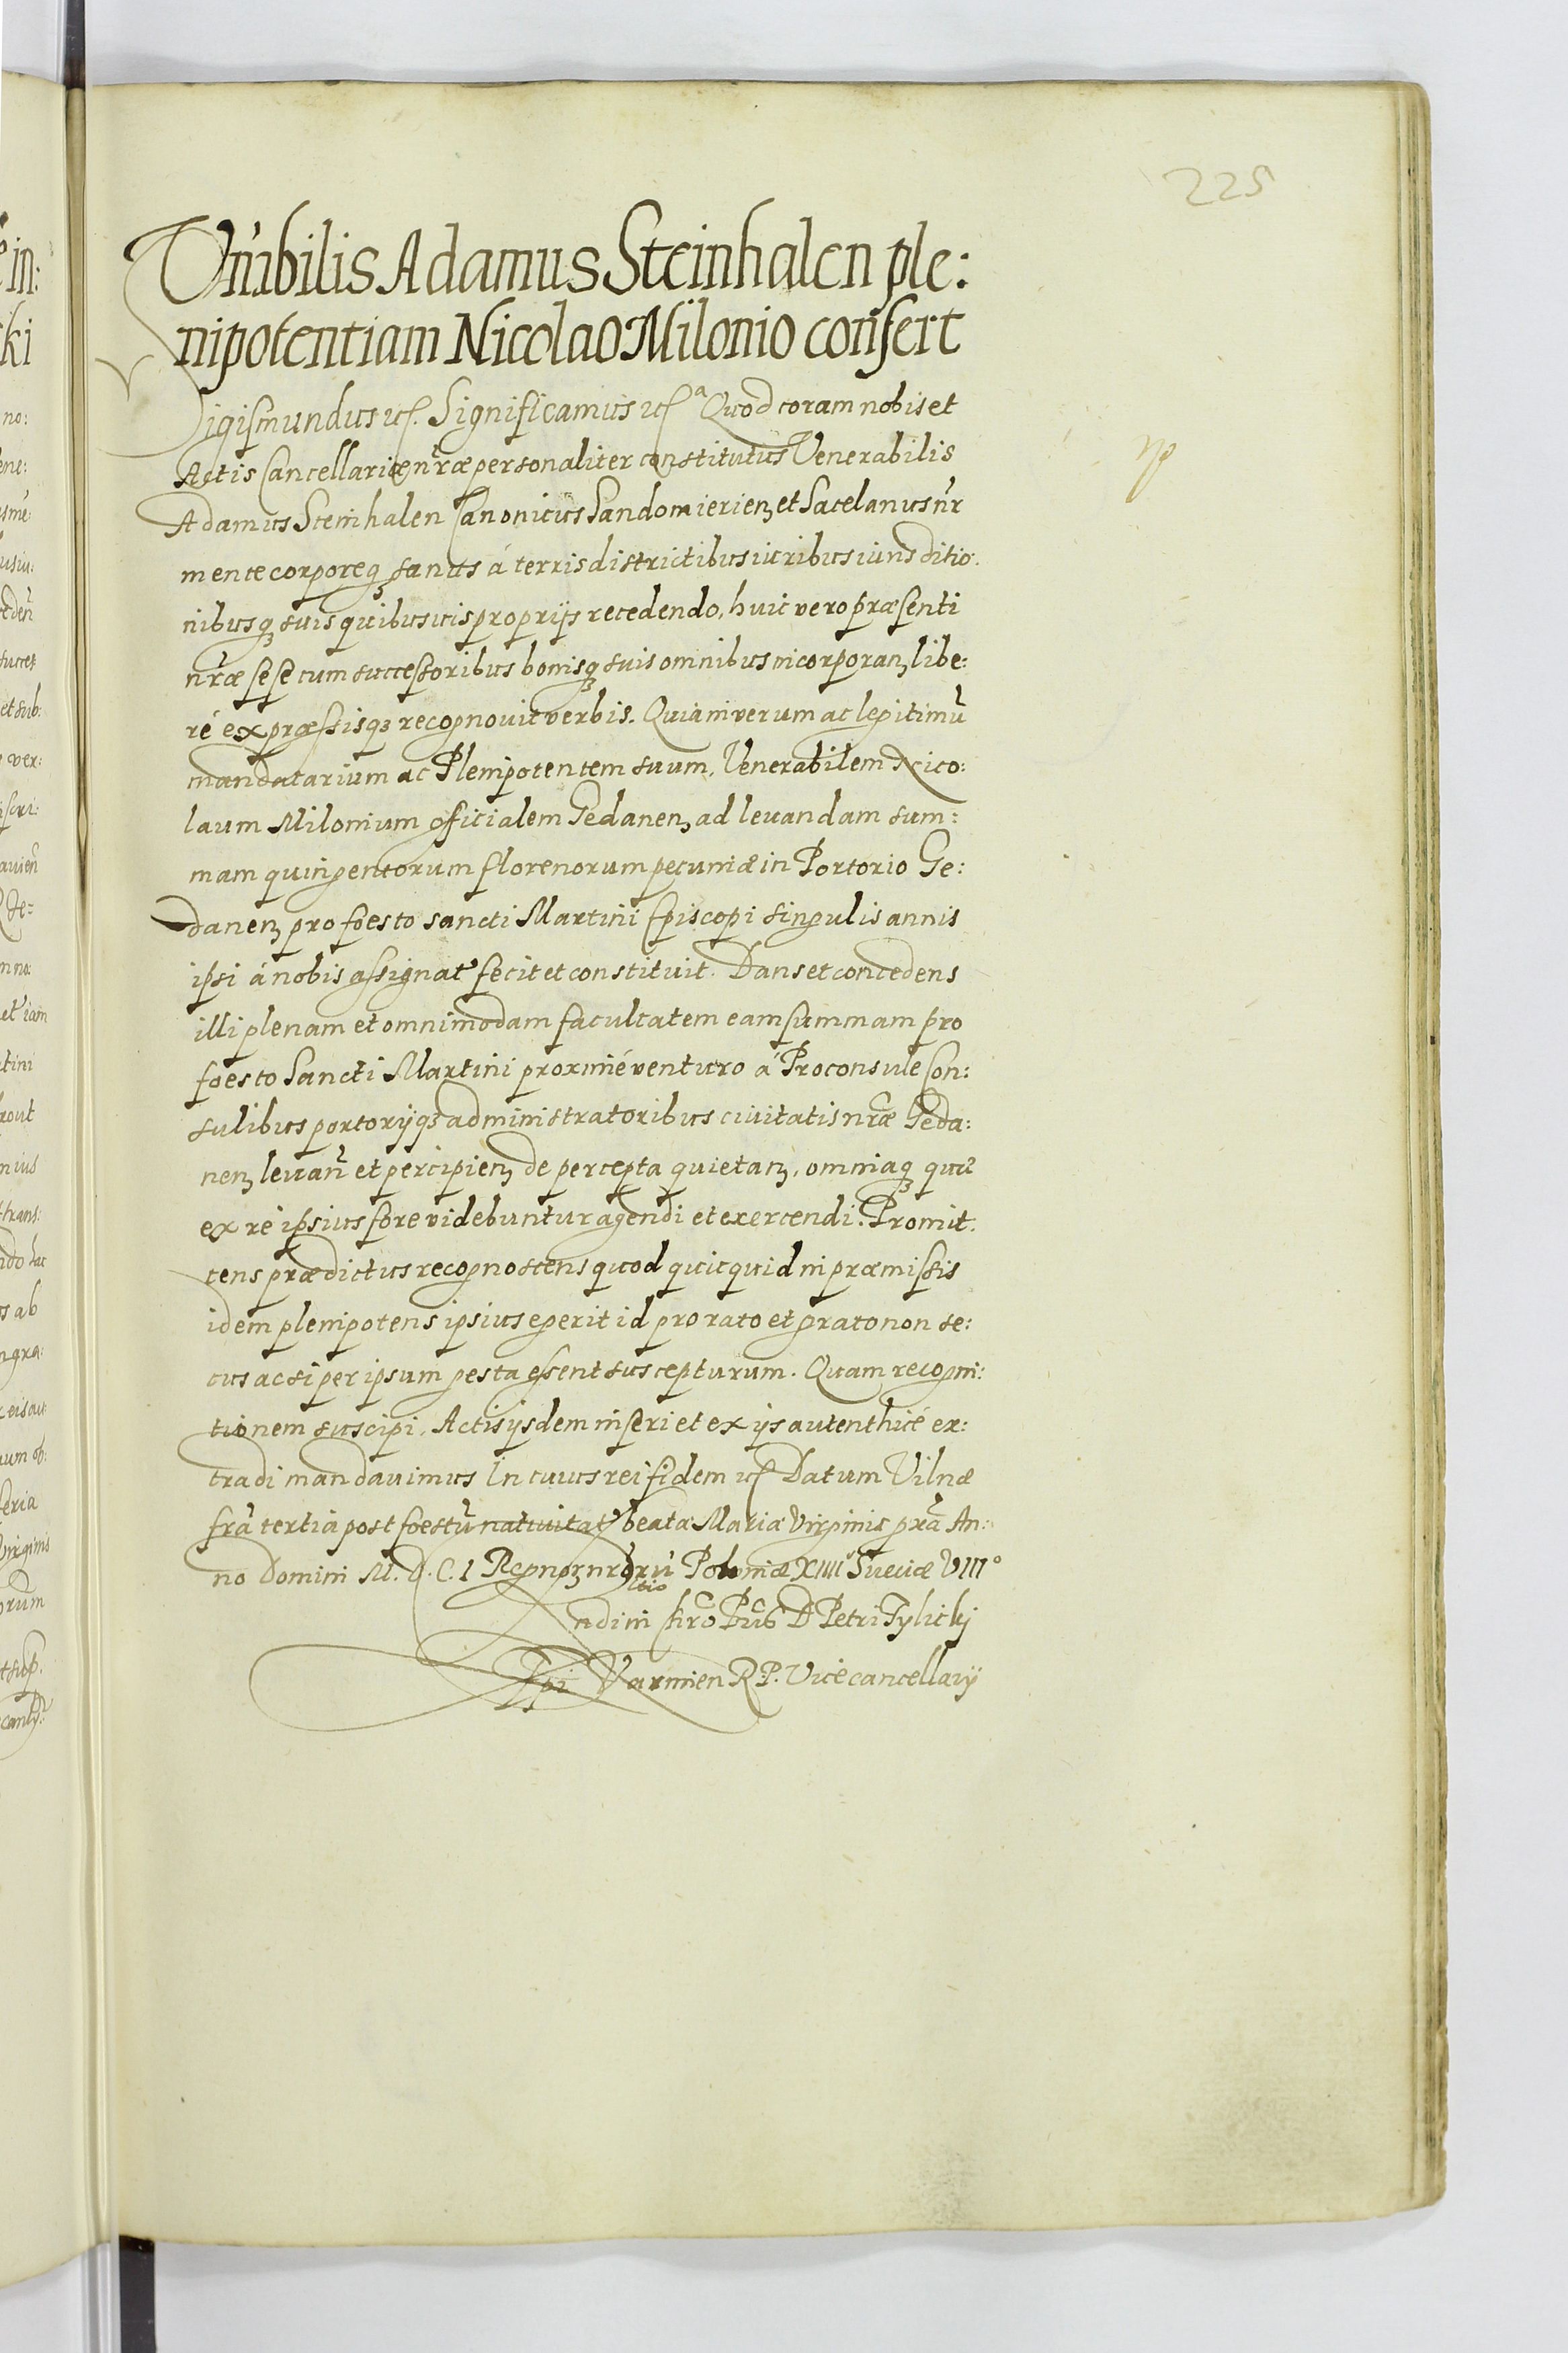 225
Vn̄ibilis Adamus Steinhalen ple:
nipotentiam Nicolao Milonio confert
Sigismundus ѵc̃. Significamus ѵc̃ ª Quod coram nobis et
Actis Cancellariæ nr̄æ personaliter constitutus Venerabilis
Adamus Steinhalen Canonicus Sandomierienꝫ et Sacelanus nr̄
mente corporeqꝫ sanus á terris districtibus iuribus iurisditio:
nibusqꝫ suis quibusuis proprijs recedendo, huic vero præsenti
nr̄æ sese cum successoribus bonisqꝫ suis omnibus incorporanꝫ libe:
ré expræssisqꝫ recognouit verbis. Quia in verum ac legitimū
mandatarium ac Plenipotentem suum, Venerabilem Nico:
laum Milonium officialem Gedanenꝫ ad leuandam sum:
mam quingentorum florenorum pecuniæ in Portorio Ge:
danenꝫ pro foesto sancti Martini Episcopi singulis annis
ipsi á nobis assignat' fecit et constituit. Dans et concedens
illi plenam et omnimodam facultatem eam summam pro
foesto Sancti Martini proximé venturo á Proconsule Con:
sulibus portorijqꝫ administratoribus ciuitatis nr̄æ Geda:
nenꝫ leuan̄ et percipienꝫ de percepta quietanꝫ, omniaqꝫ quæ
ex ré ipsius fore videbuntur agendi et exercendi. Promit:
tens prædictus recognostens quod quicquid in præmissis
idem plenipotens ipsius egerit id pro rato et grato non se:
cus ac si per ipsum gesta essent suscepturum. Quam recogni:
tionem suscipi, Actis ijsdem inseri et ex ijs autenthicé ex:
tradi mandauimus In cuius rei fidem ѵc̃ Datum Vilnæ
fr̄a tertia post foestū natiuitat' beatæ Mariæ Virginis prꝫā An:
no Domini M. D. C. I Regnoꝫ nr̄orū Poloniæ XIIII° Sueciæ VIII°
Petri Tylickj
Epi Varmien R. P. Vicecancellarij